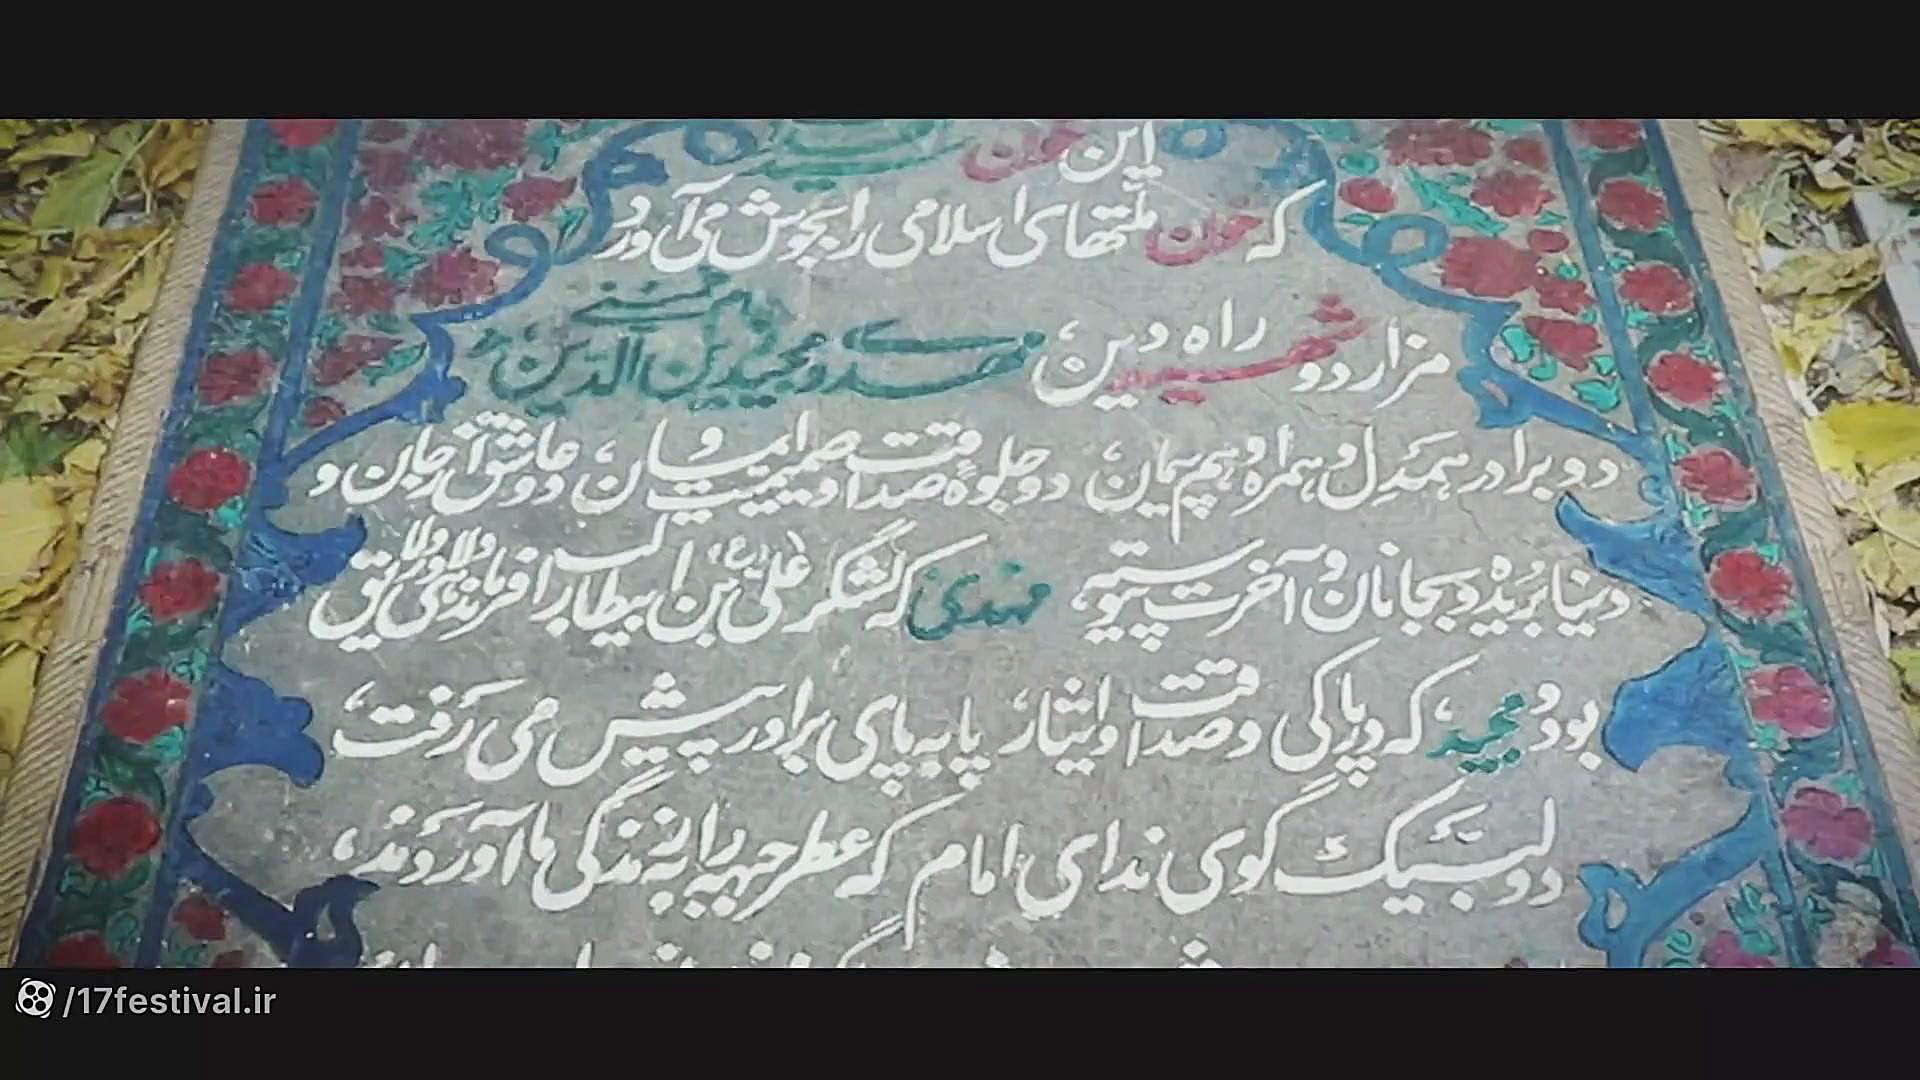 این خون
که خون ملتهای اسلامی را بجوش می‌آورد
مزار دو شهید راه دین، مهدی و مجید زین الدین،
دو برادر همدل و همراه و هم پیمان، دو جلوهٔ صداقت و صمیمیت و ایمان، دو عاشق از جان و
دنیا بریده و بجانان و آخرت پیوسته، مهدی که لشگر علی بن ابیطالب (ع) را فرماندهی لایق
بود و مجید، که در پاکی و صداقت و ایثار، پا به پای برادر پیش می رفت،
دو لبیک گوی ندای امام که عطر جبهه را به زندگی ما آوردند،
/17festival.ir